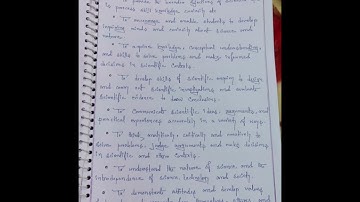 to process skill knowledge
• To encourage and enable students to develop
inquiring minds and curiosity about science and
nature.
• To acquire knowledge, conceptual understanding,
and skills to solve problems and make informed
decisions in scientific contexts.
• To develop skills of scientific inquiry to design
and carry out scientific investigations and evaluate
scientific evidence to draw conclusions.
• To communicate scientific ideas, arguments, and
practical experiences accurately in a variety of ways.
• To think analytically, critically and creatively to
solve problems, judge arguments and make decisions
in scientific and other contexts.
• To understand the nature of science and the
interdependence of science, technology and society.
• To demonstrate attitudes and develop values